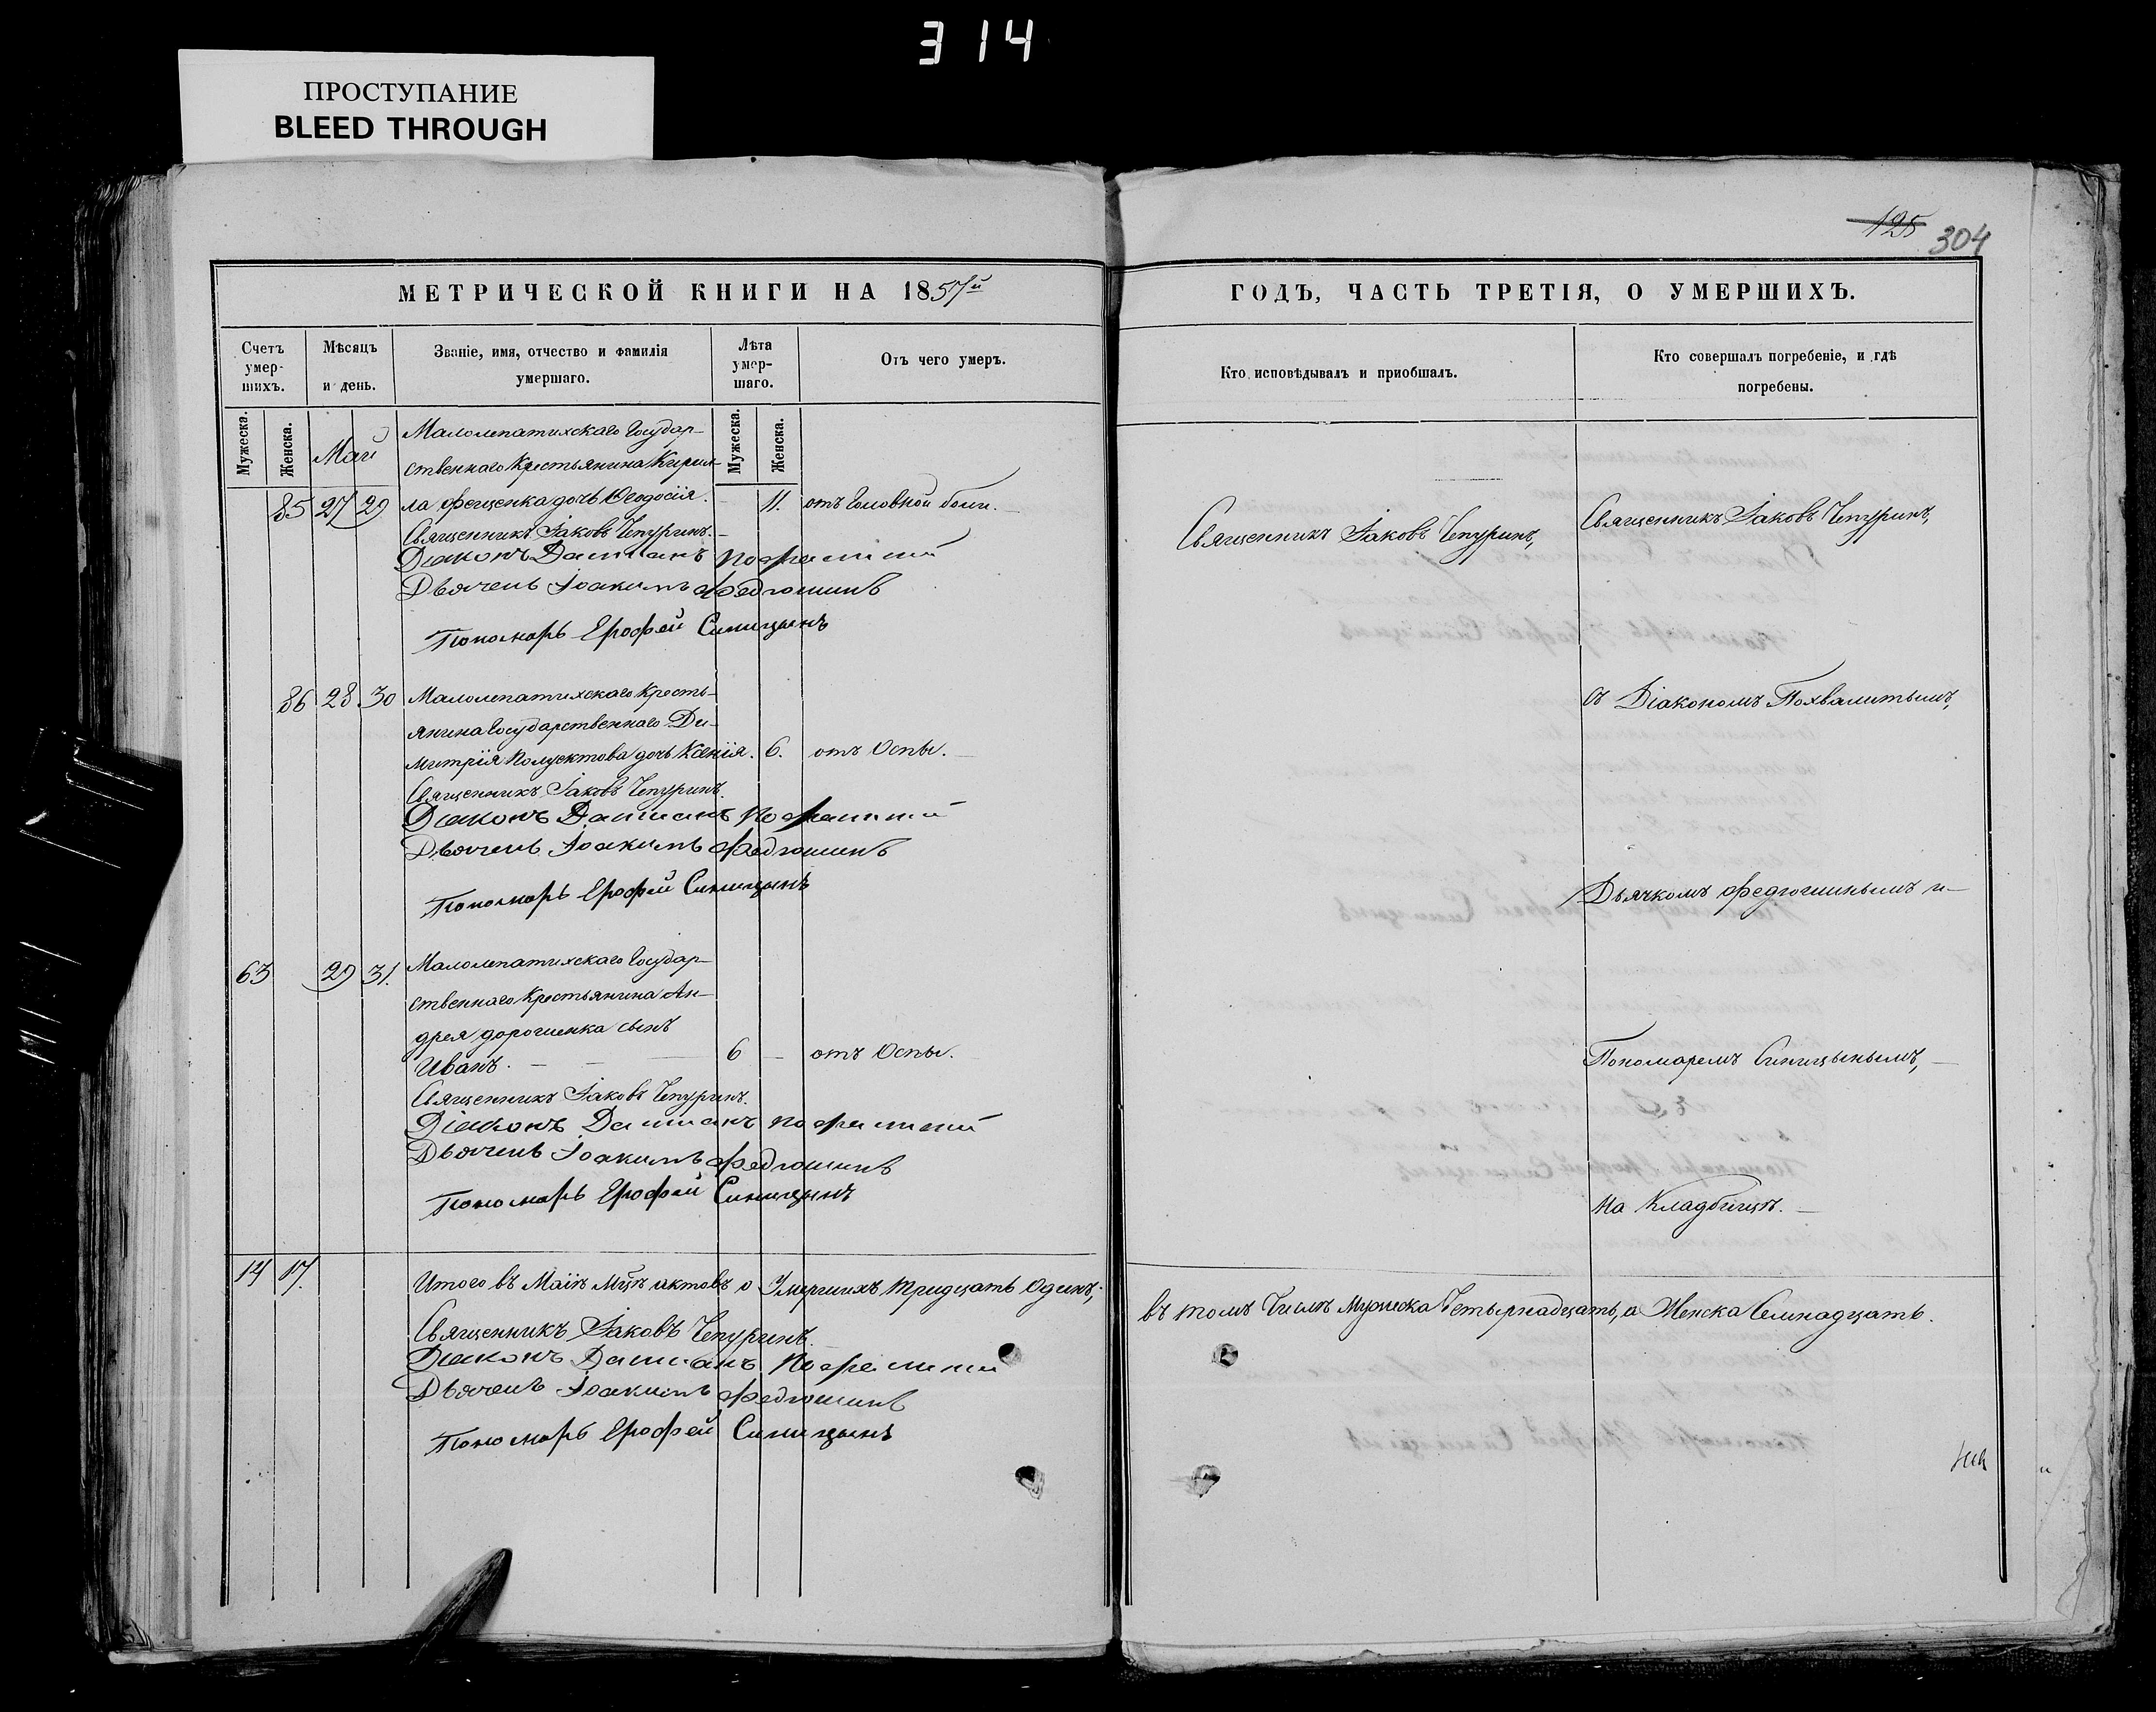 314
ПРОСТУПАНИЕ
BLEED THROUGH
125 304
МЕТРИЧЕСКОЙ КНИГИ НА 1857й
ГОДЪ, ЧАСТЬ ТРЕТІЯ, О УМЕРШИХЪ.
Счетъ умер-шихъ.
Мѣсяцъ и день.
Званіе, имя, отчество и фамилія умершаго.
Лѣта умер-шаго.
Отъ чего умеръ.
Кто исповѣдывалъ и приобщалъ.
Кто совершалъ погребеніе, и гдѣ погребены.
Мужеска. Женска. Мужеска. Женска.
Май
Малолепатихскаго Государ-
ственнаго Крестьянина Кирил-
85 27 29 ла Фещенка дочь Ѳеодосія. 11. отъ Головной боли.
Священникъ Іаковъ Чепуринъ.
Діаконъ Даміанъ
Дьячекъ Іоакимъ Федюшинъ
Пономарь Ерофей Синицынъ
86 28 30 Малолепатихскаго Кресть-
янина Государственнаго Ди-
митрія Полуектова дочь Ксенія. 6. отъ Оспы.
Священникъ Іаковъ Чепуринъ.
Діаконъ Даміанъ
Дьячекъ Іоакимъ Федюшинъ
Пономарь Ерофей Синицынъ
63 29 31. Малолепатихскаго Государ-
ственнаго Крестьянина Ан-
дрея Дорошенка сынъ
Иванъ. 6 отъ Оспы.
Священникъ Іаковъ Чепуринъ.
Діаконъ Даміанъ
Дьячекъ Іоакимъ Федюшинъ
Пономарь Ерофей Синицынъ
14 17. Итого въ Маіѣ Мцѣ актовъ о Умершихъ тридцать Одинъ,
Священникъ Іаковъ Чепуринъ
Діаконъ Даміанъ
Дьячекъ Іоакимъ Федюшинъ
Пономарь Ерофей Синицынъ
Священникъ Іаковъ Чепуринъ,
Священникъ Іаковъ Чепуринъ,
съ Діакономъ Похвалитымъ,
Дьячкомъ Федюшинымъ и
Пономаремъ Синицынымъ,
на Кладбищѣ.
въ томъ Числѣ Мужеска Четырнадцать, а Женска Семнадцать.